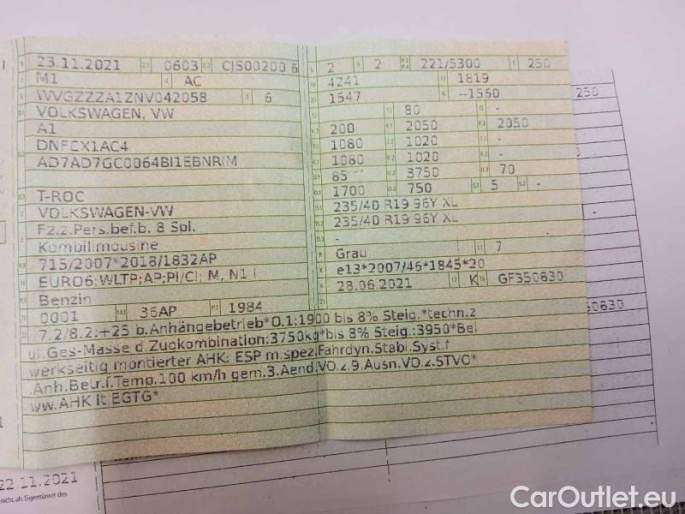 23.11.2021 0603 CJ500200 6 2 2 221/5300 250
M1 AC 4241 1819
WVGZZZA1ZNV042058 6 1547 --1560 250
VOLKSWAGEN, VW 80 -
A1 200 2050 2050
DNFCX1AC4 1080 1020 -
AD7AD7GC0064BI1EBNRIM 1080 1020 -
85 3750 70
T-ROC 1700 750 5 -
VOLKSWAGEN-VW 235/40 R19 96Y XL
Fz.z.Pers.bef.b. 8 Spl. 235/40 R19 96Y XL
Kombilimousine -
715/2007*2018/1832AP Grau 7
EURO6;WLTP;AP;PI/CI; M, N1 I e13*2007/46*1845*20
Benzin 28.06.2021 K GF350630
0001 36AP 1984 0630
7.2/8.2:+25 b.Anhängebetrieb*O.1:1900 bis 8% Steig.*techn.z
ul.Ges-Masse d Zugkombination:3750kg*bis 8% Steig.:3950*Bei
werkseitig montierter AHK: ESP m.spez.Fahrdyn.Stabi.Syst.f
.Anh.Betr.f.Temo.100 km/h gem.3.Aend.VO.z.9.Ausn.VO.z.STVO*
ww.AHK lt.EGTG*
22.11.2021
nicht als Eigentümer des
CarOutlet.eu